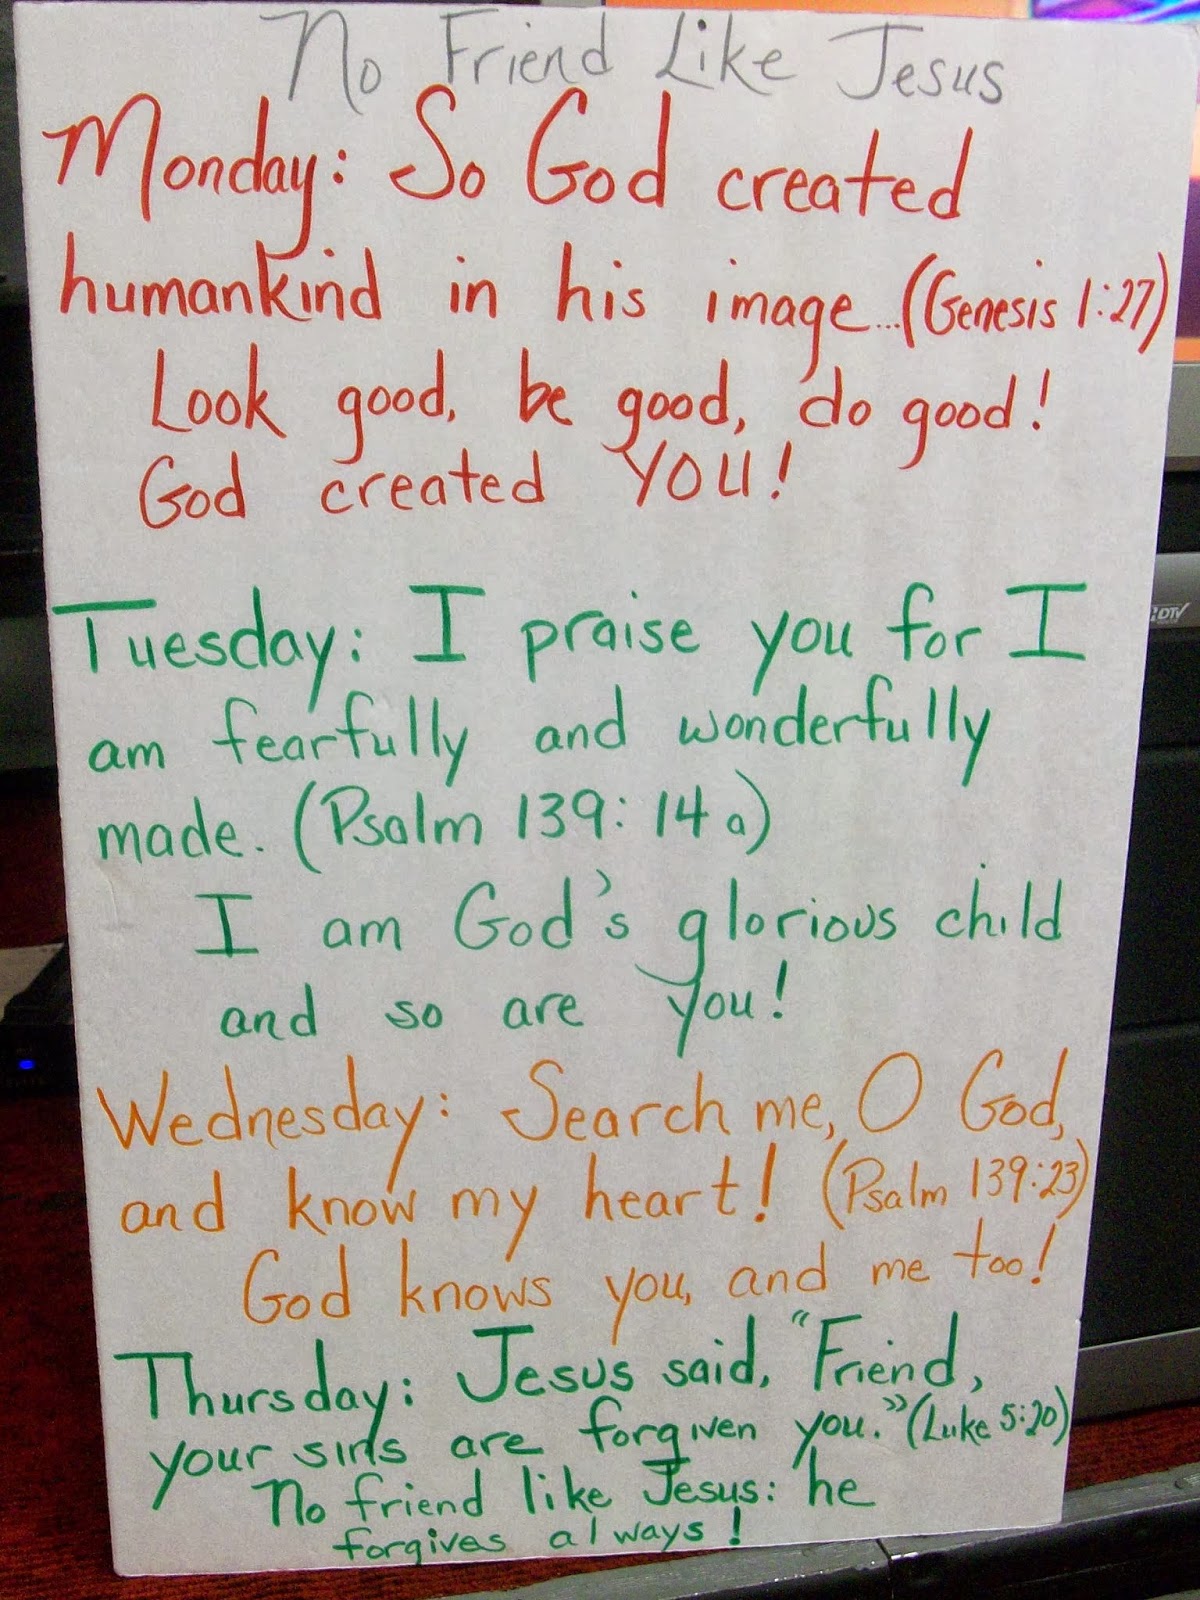 No Friend Like Jesus
Monday: So God created
humankind in his image...(Genesis 1:27)
Look good, be good, do good!
God created YOU!
Tuesday: I praise you for I
am fearfully and wonderfully
made. (Psalm 139:14a)
I am God's glorious child
and so are you!
Wednesday: Search me, O God,
and know my heart! (Psalm 139:23)
God knows you, and me too!
Thursday: Jesus said, "Friend,
your sins are forgiven you."(Luke 5:20)
No friend like Jesus: he
forgives always!
DTV